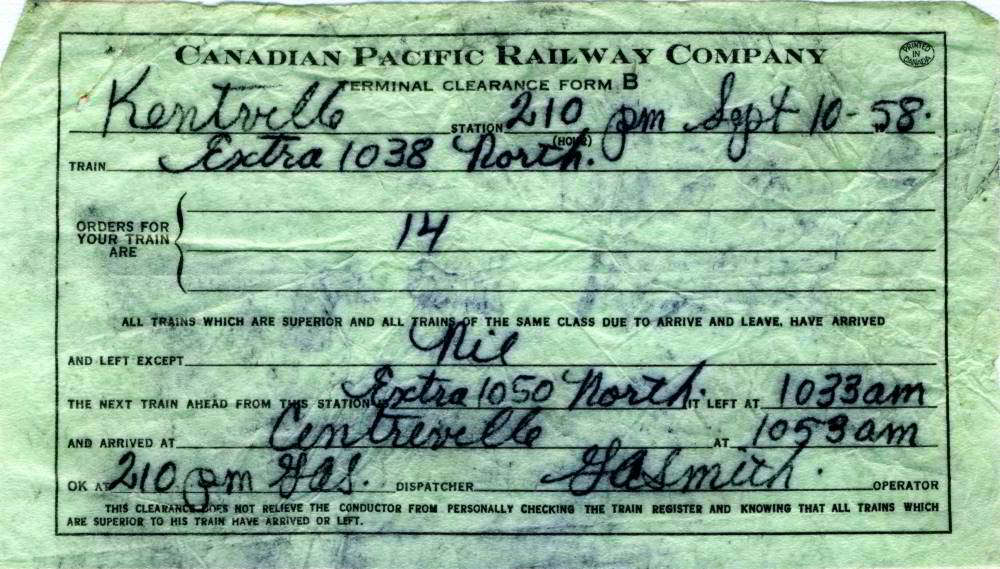 CANADIAN PACIFIC RAILWAY COMPANY
PRINTED IN CANADA
TERMINAL CLEARANCE FORM B
Kentville STATION 210 pm (HOUR) Sept 10-1958.
TRAIN Extra 1038 North.
ORDERS FOR YOUR TRAIN ARE
14
ALL TRAINS WHICH ARE SUPERIOR AND ALL TRAINS OF THE SAME CLASS DUE TO ARRIVE AND LEAVE, HAVE ARRIVED
AND LEFT EXCEPT Nil
THE NEXT TRAIN AHEAD FROM THIS STATION IS Extra 1050 North. IT LEFT AT 1033 am
AND ARRIVED AT Centreville AT 1053 am
OK AT 210 pm GAS. DISPATCHER GA Smith. OPERATOR
THIS CLEARANCE DOES NOT RELIEVE THE CONDUCTOR FROM PERSONALLY CHECKING THE TRAIN REGISTER AND KNOWING THAT ALL TRAINS WHICH
ARE SUPERIOR TO HIS TRAIN HAVE ARRIVED OR LEFT.